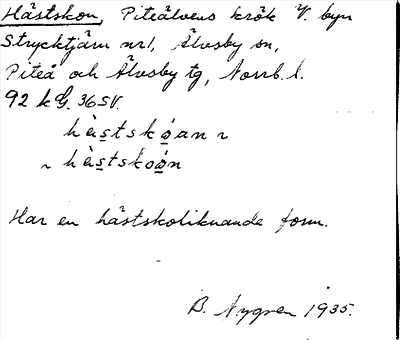 Hästskon, Piteälvens krök V. byn
Strycktjärn nr1, Älvsby sn,
Piteå och Älvsby tg, Norrb. l.
92 kG. 36 SV.
hä̀stskọan ~
~ hä̀stskoọ̀n
Har en hästskoliknande form.
B. Nygren 1935.